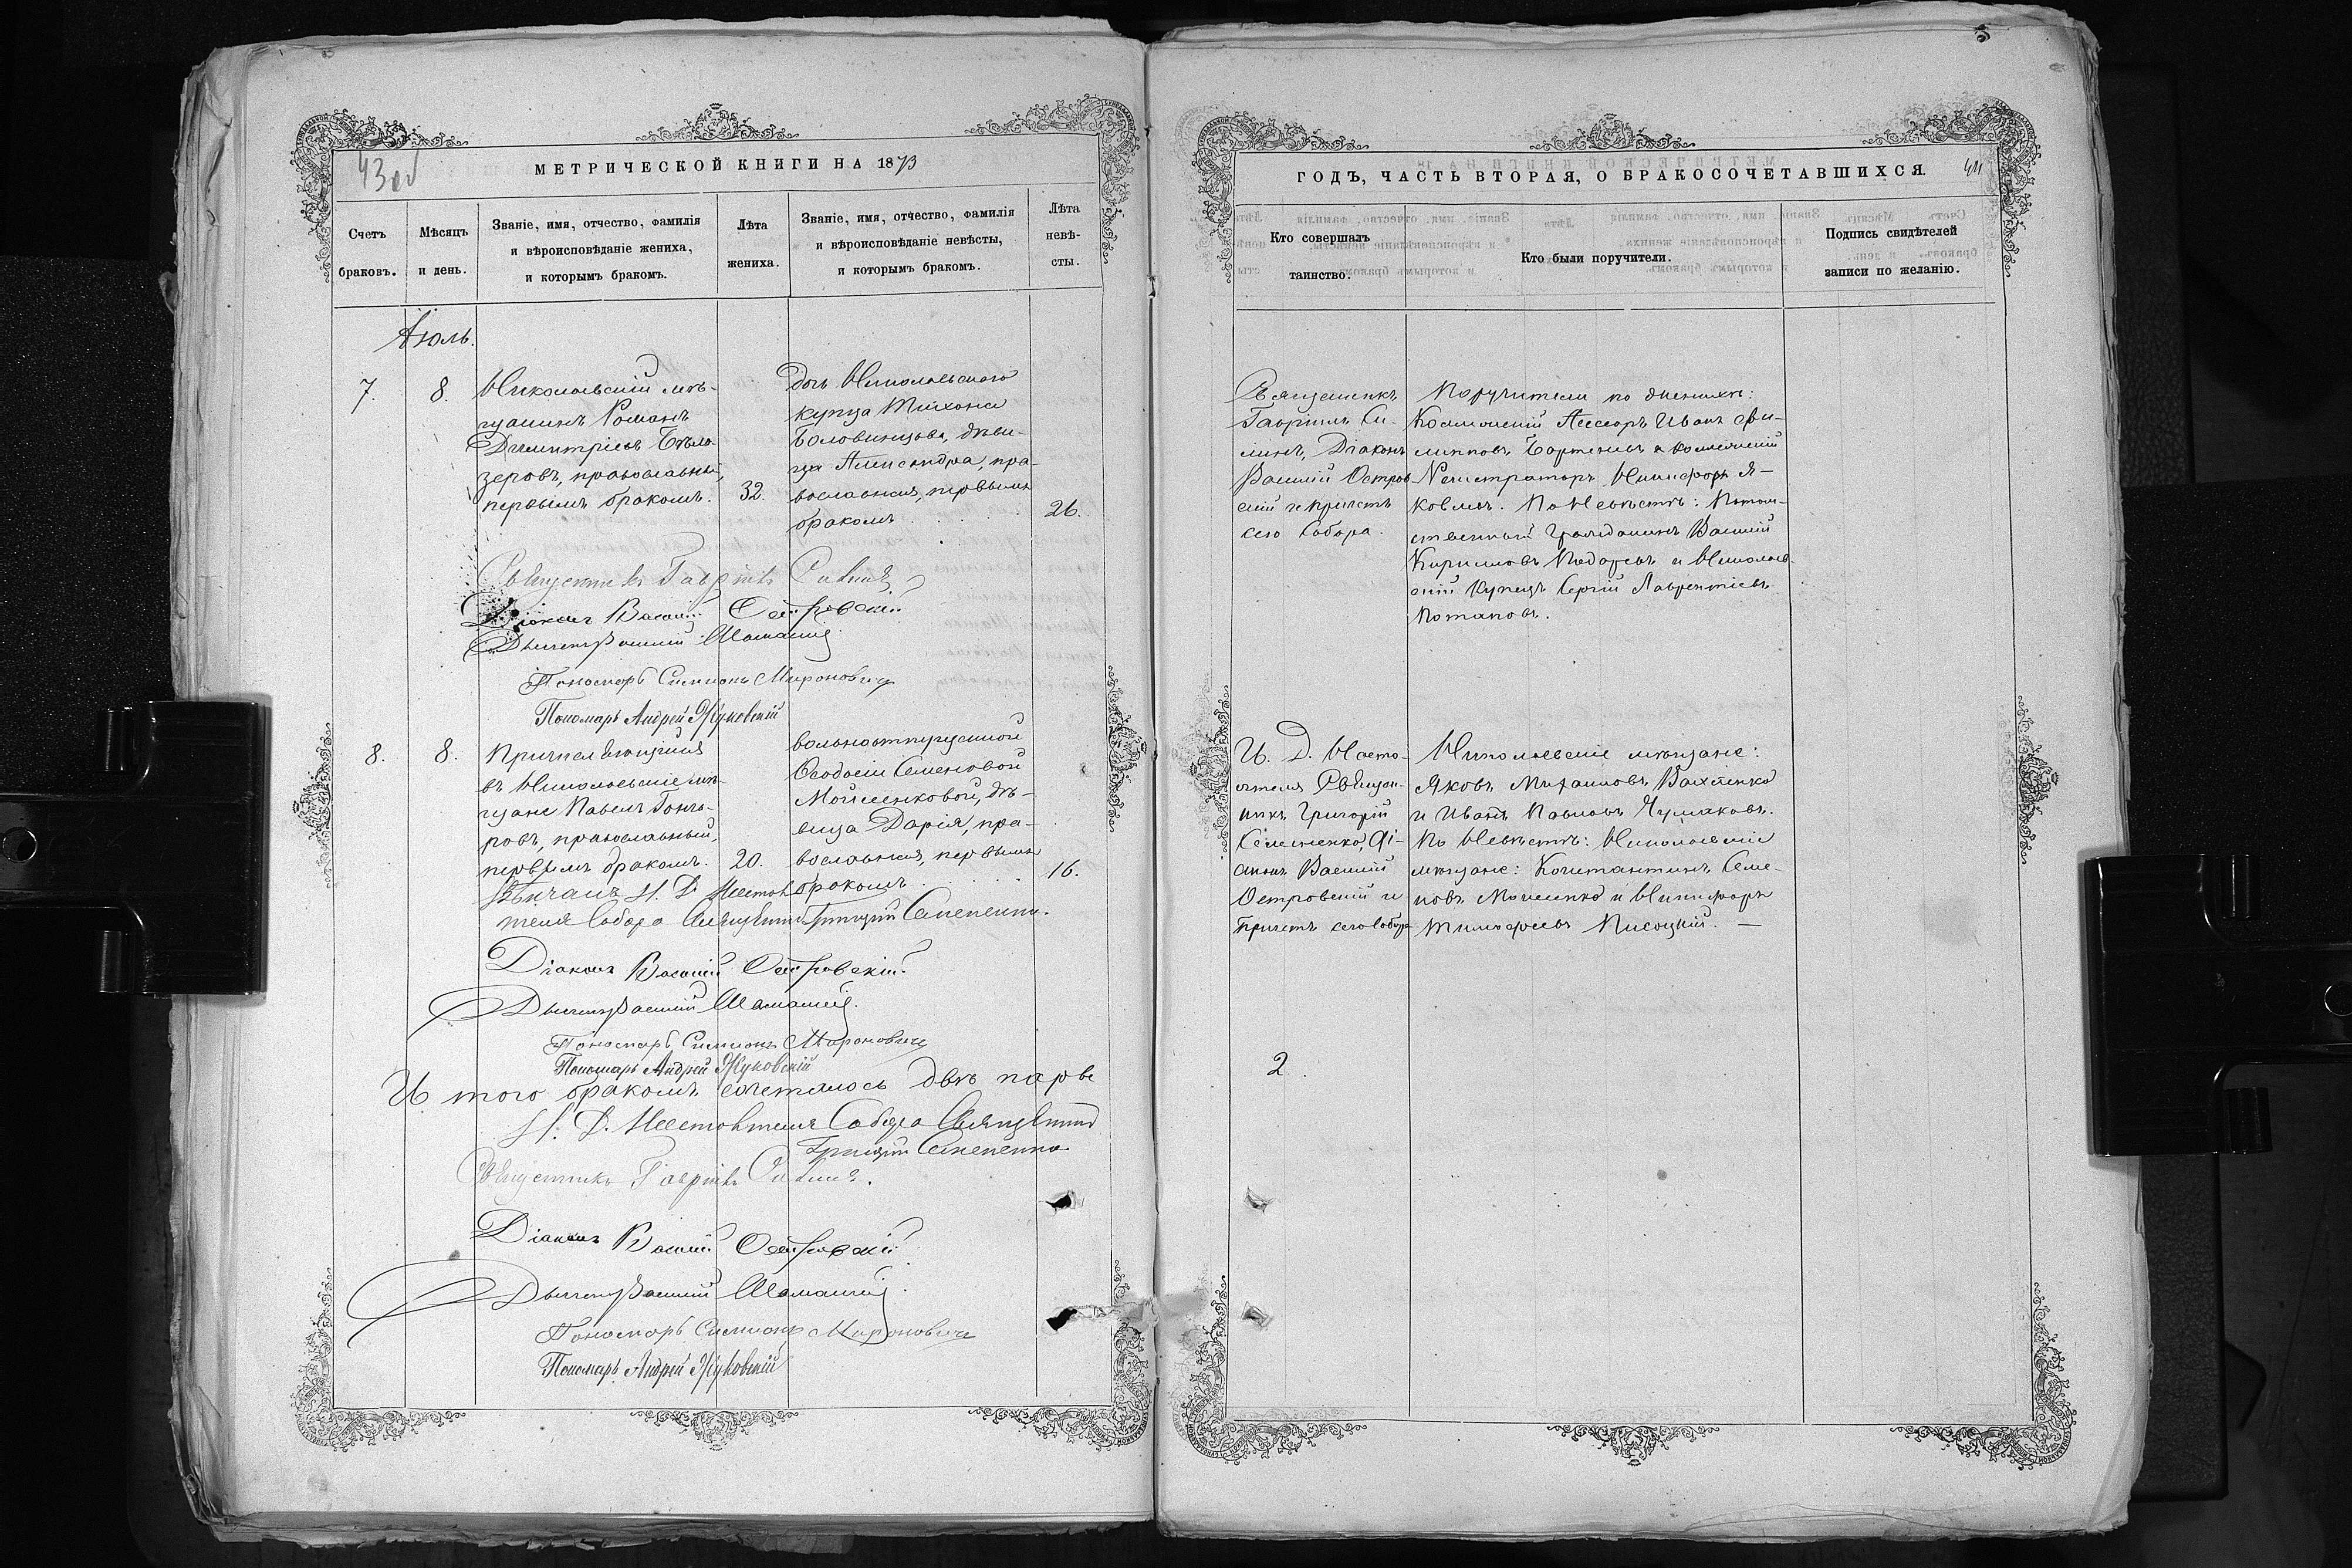 43 об
МЕТРИЧЕСКОЙ КНИГИ НА 1873
Счетъ
браковъ.
Мѣсяцъ
и день.
Званіе, имя, отчество, фамилія
и вѣроисповѣданіе жениха,
и которымъ бракомъ.
Лѣта
жениха.
Званіе, имя, отчество, фамилія
и вѣроисповѣданіе невѣсты,
и которымъ бракомъ.
Лѣта
невѣ-
сты.
Іюль.
7.
8.
Николаевскій мѣ-
щанинъ Романъ
Димитріевъ Бѣло-
зеровъ, православный,
первымъ бракомъ.
32.
дочь Николаевскаго
купца Тихона
Головинцова, дѣви-
ца Александра, пра-
вославная, первымъ
бракомъ
26.
Священникъ Гавріилъ Силинъ
Діаконъ Василій Островскій
Дьячекъ Василій
Пономарь Симеонъ Мироновичъ
Пономарь Андрей Жуковскій
8.
8.
Причисляющійся
въ Николаевскіе мѣ-
щане Павелъ Гонча-
ровъ, православный,
первымъ бракомъ.
20.
вольноотпущенной
Ѳеодосіи Семеновой
Мойсеенковой, дѣ-
вица Дарія, пра-
вославная, первымъ
бракомъ
16.
Вѣнчалъ И. Д. Настоя-
теля Собора Священникъ Григорій Семененко.
Діаконъ Василій Островскій.
Дьячекъ Василій
Пономарь Симеонъ Мироновичъ
Пономарь Андрей Жуковскій
И того бракомъ сочеталось двѣ пары
И. Д. Настоятеля Собора Священникъ
Григорій Семененко
Священникъ Гавріилъ Силинъ.
Діаконъ Василій Островскій
Дьячекъ Василій
Пономарь Симеонъ Мироновичъ
Пономарь Андрей Жуковскій
ГОДЪ, ЧАСТЬ ВТОРАЯ, О БРАКОСОЧЕТАВШИХСЯ.
44
Кто совершалъ
таинство.
Кто были поручители.
Подпись свидѣтелей
записи по желанію.
Священникъ
Гавріилъ Си-
линъ, Діаконъ
Василій Островс-
кій и причетъ
сего Собора.
Поручители по женихѣ:
Коллежскій Ассесоръ Иванъ Фи-
липповъ и Коллежскій
Регистраторъ Никифоръ Я-
ковлевъ. По Невѣстѣ: Потом-
ственный Гражданинъ Василій
Кирилловъ и Николаев-
скій Купецъ Сергій Лаврентіевъ
Потаповъ.
И. Д. Насто-
ятеля Священ-
никъ Григорій
Семененко, Ді-
аконъ Василій
Островскій и
Причетъ сего Собора
Николаевскіе мѣщане:
Яковъ Михаиловъ
и Иванъ Павловъ Чумаковъ.
По Невѣстѣ: Николаевскіе
мѣщане: Константинъ Семе-
новъ и Никифоръ
Тимофеевъ Писоцкій.
2